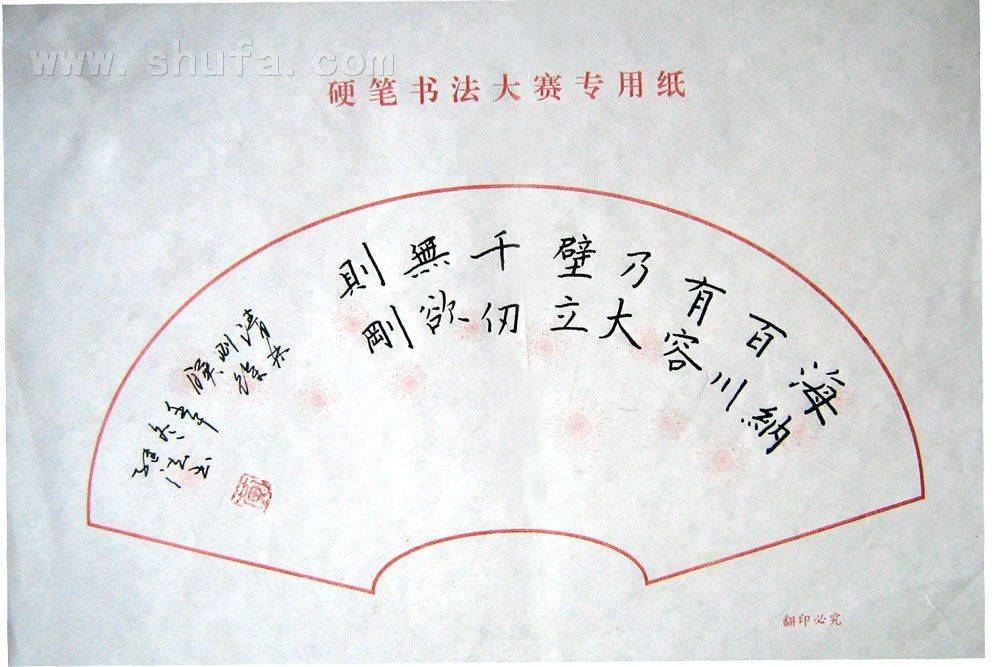 www.shufa.com
硬笔书法大赛专用纸
海納
百川
有容
乃大
壁立
千仞
無欲
則剛
清林
則徐
翻印必究